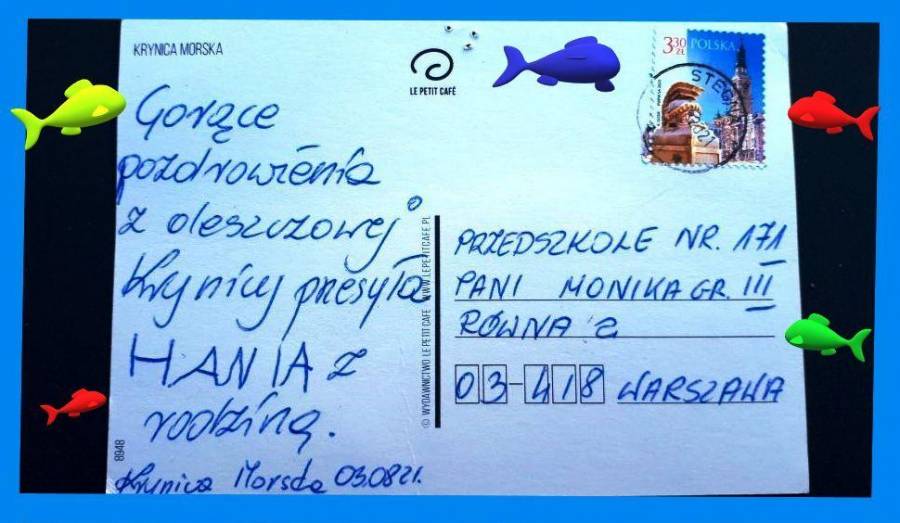 KRYNICA MORSKA
LE PETIT CAFÉ
3,30 ZŁ POLSKA
Gorące
pozdrowienia
z deszczowej
Krynicy presyła
HANIA z
rodziną.
Krynica Morska 03.08 21.
8948
© WYDAWNICTWO LE PETIT CAFE WWW.LEPETITCAFE.PL
PRZEDSZKOLE NR. 171
PANI MONIKA GR. III
RÓWNA 2
03-418 WARSZAWA